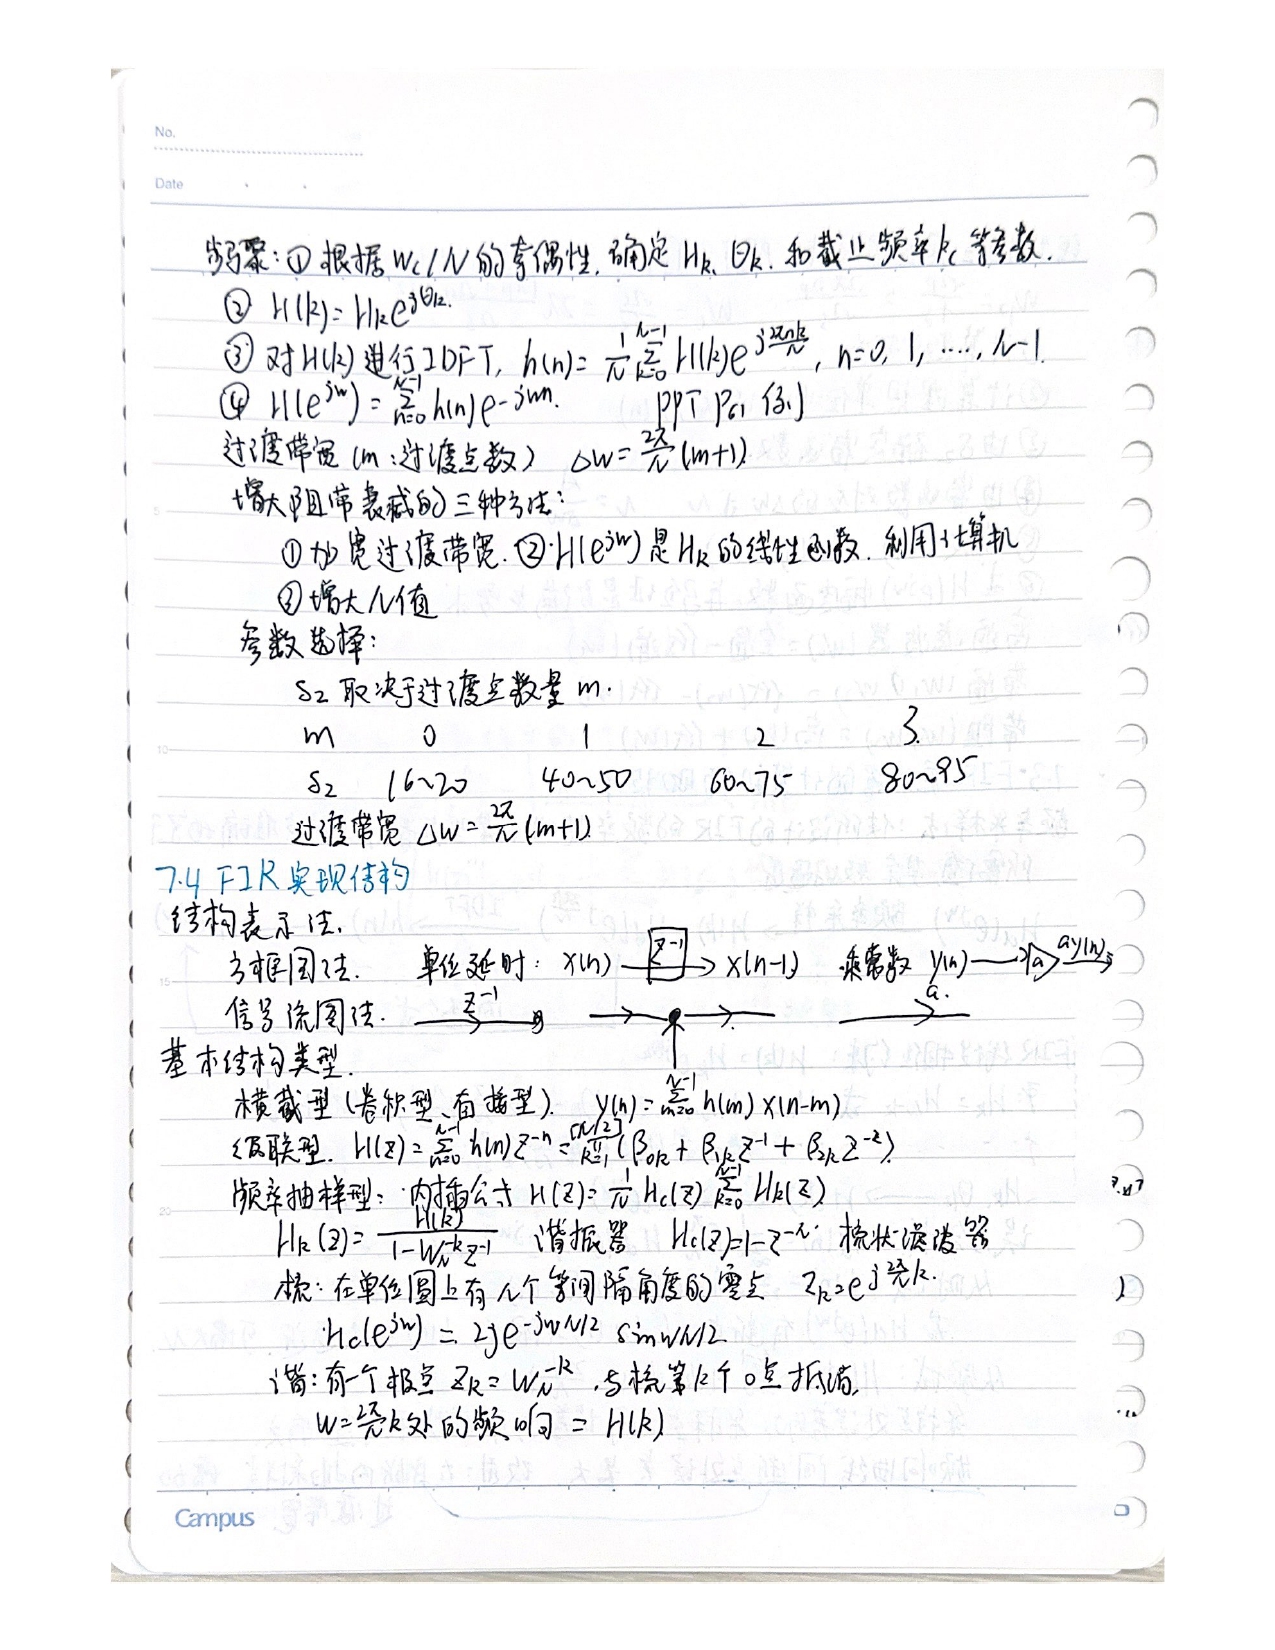 No.
Date
步骤:① 根据 Wc/N的奇偶性,确定Hk、θk.和截止频率kc等参数.
② H(k)=Hk e^{jθk}.
③ 对H(k)进行IDFT, h(n)= 1/N Σ_{k=0}^{N-1} H(k)e^{j2πnk/N}, n=0, 1, ...., N-1.
④ H(e^{jw})= Σ_{n=0}^{N-1} h(n)e^{-jwn}. PPT P61 例
过渡带宽 (m:过渡点数) △W= 2π/N (m+1).
增大阻带衰减的三种方法:
①加宽过渡带宽. ②H(e^{jw})是Hk的线性函数. 利用计算机
③增大N值
参数选择:
δ2 取决于过渡点数量 m.
m 0 1 2 3.
δ2 16~20 40~50 60~75 80~95
过渡带宽 △W= 2π/N (m+1)
7.4 FIR实现结构
结构表示法.
方框图法. 单位延时: x(n) z^{-1} x(n-1) 乘常数 y(n) a ay(n)
信号流图法. z^{-1} a.
基本结构类型.
横截型(卷积型、直接型). y(n)= Σ_{m=0}^{N-1} h(m)x(n-m)
级联型. H(z)= Σ_{n=0}^{N-1} h(n)z^{-n} = Π_{k=1}^{[N/2]} (β0k + β1k z^{-1} + β2k z^{-2}).
频率抽样型: 内插公式 H(z)= 1/N Hc(z) Σ_{k=0}^{N-1} Hk(z)
Hk(z)= H(k)/(1-W_N^{-k}z^{-1}) 谐振器 Hc(z)=1-z^{-N}. 梳状滤波器
梳:在单位圆上有N个等间隔角度的零点 Zk=e^{j2π/N k}.
Hc(e^{jw}) = 2je^{-jwN/2} sinwN/2
谐:有一个极点 Zk=W_N^{-k},与梳第k个0点抵消,
W=2π/N k处的频响 = H(k)
Campus